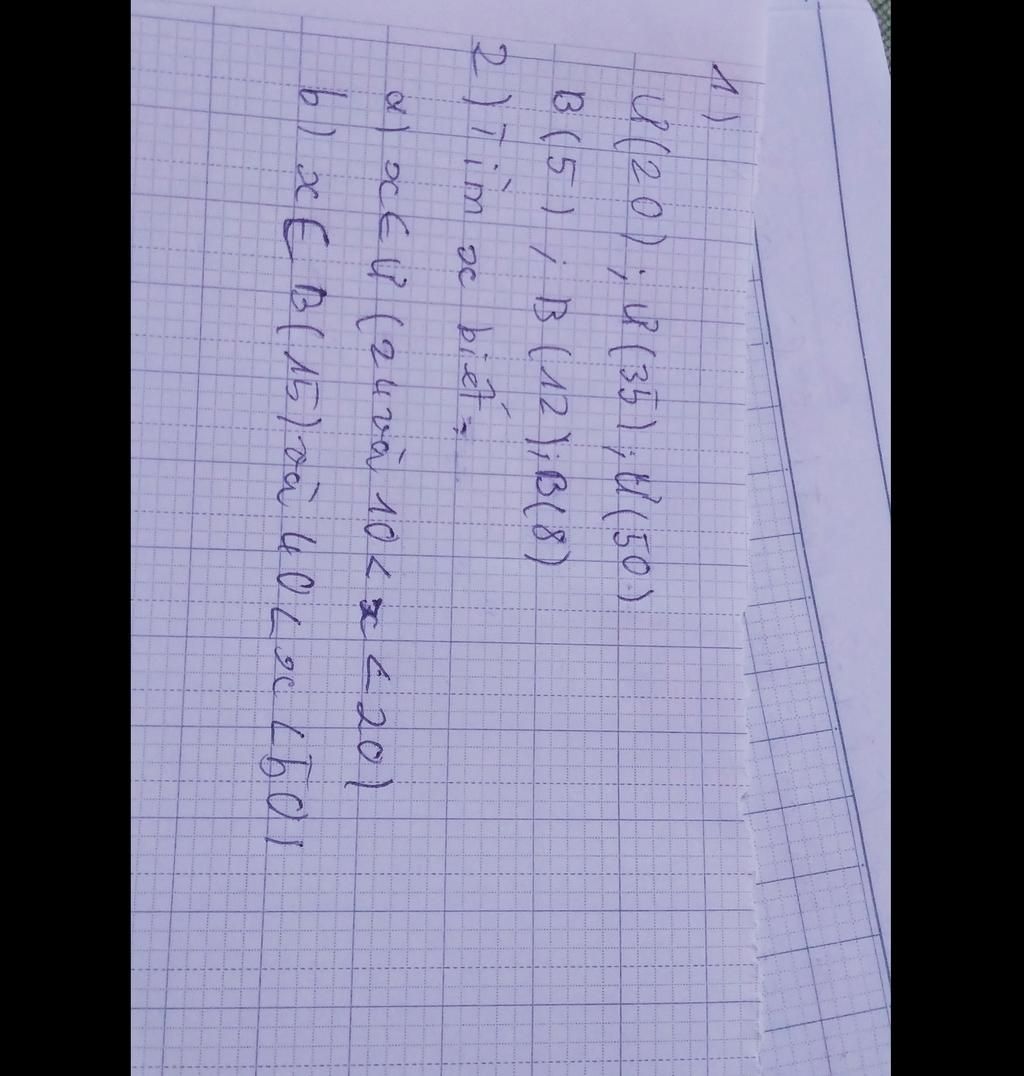 1)
Ư(20) ; Ư(35) ; Ư(50)
B(5) ; B(12) ; B(8)
2) Tìm x biết :
a) x∈Ư (24 và 10 < x < 20)
b) x ∈ B(15) và 40 < x < 50)